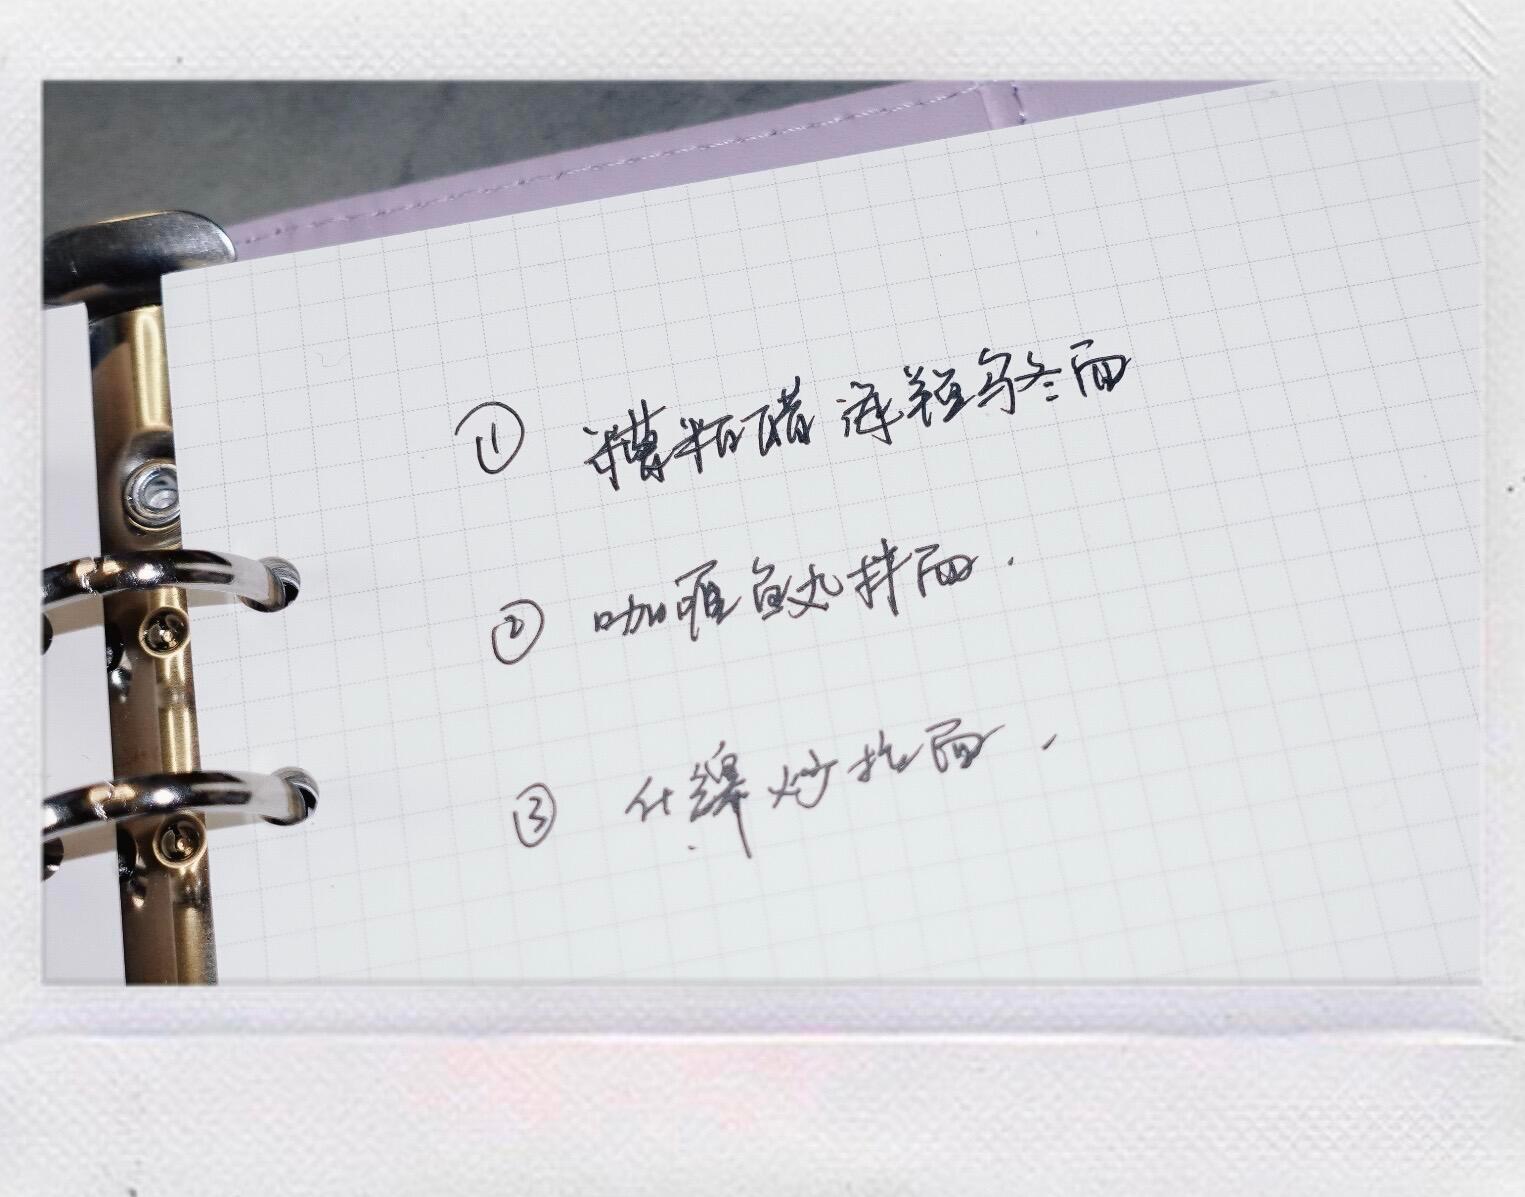 ① 糟粕醋海鲜乌冬面
② 咖喱鱼丸拌面.
③ 什锦炒拉面.